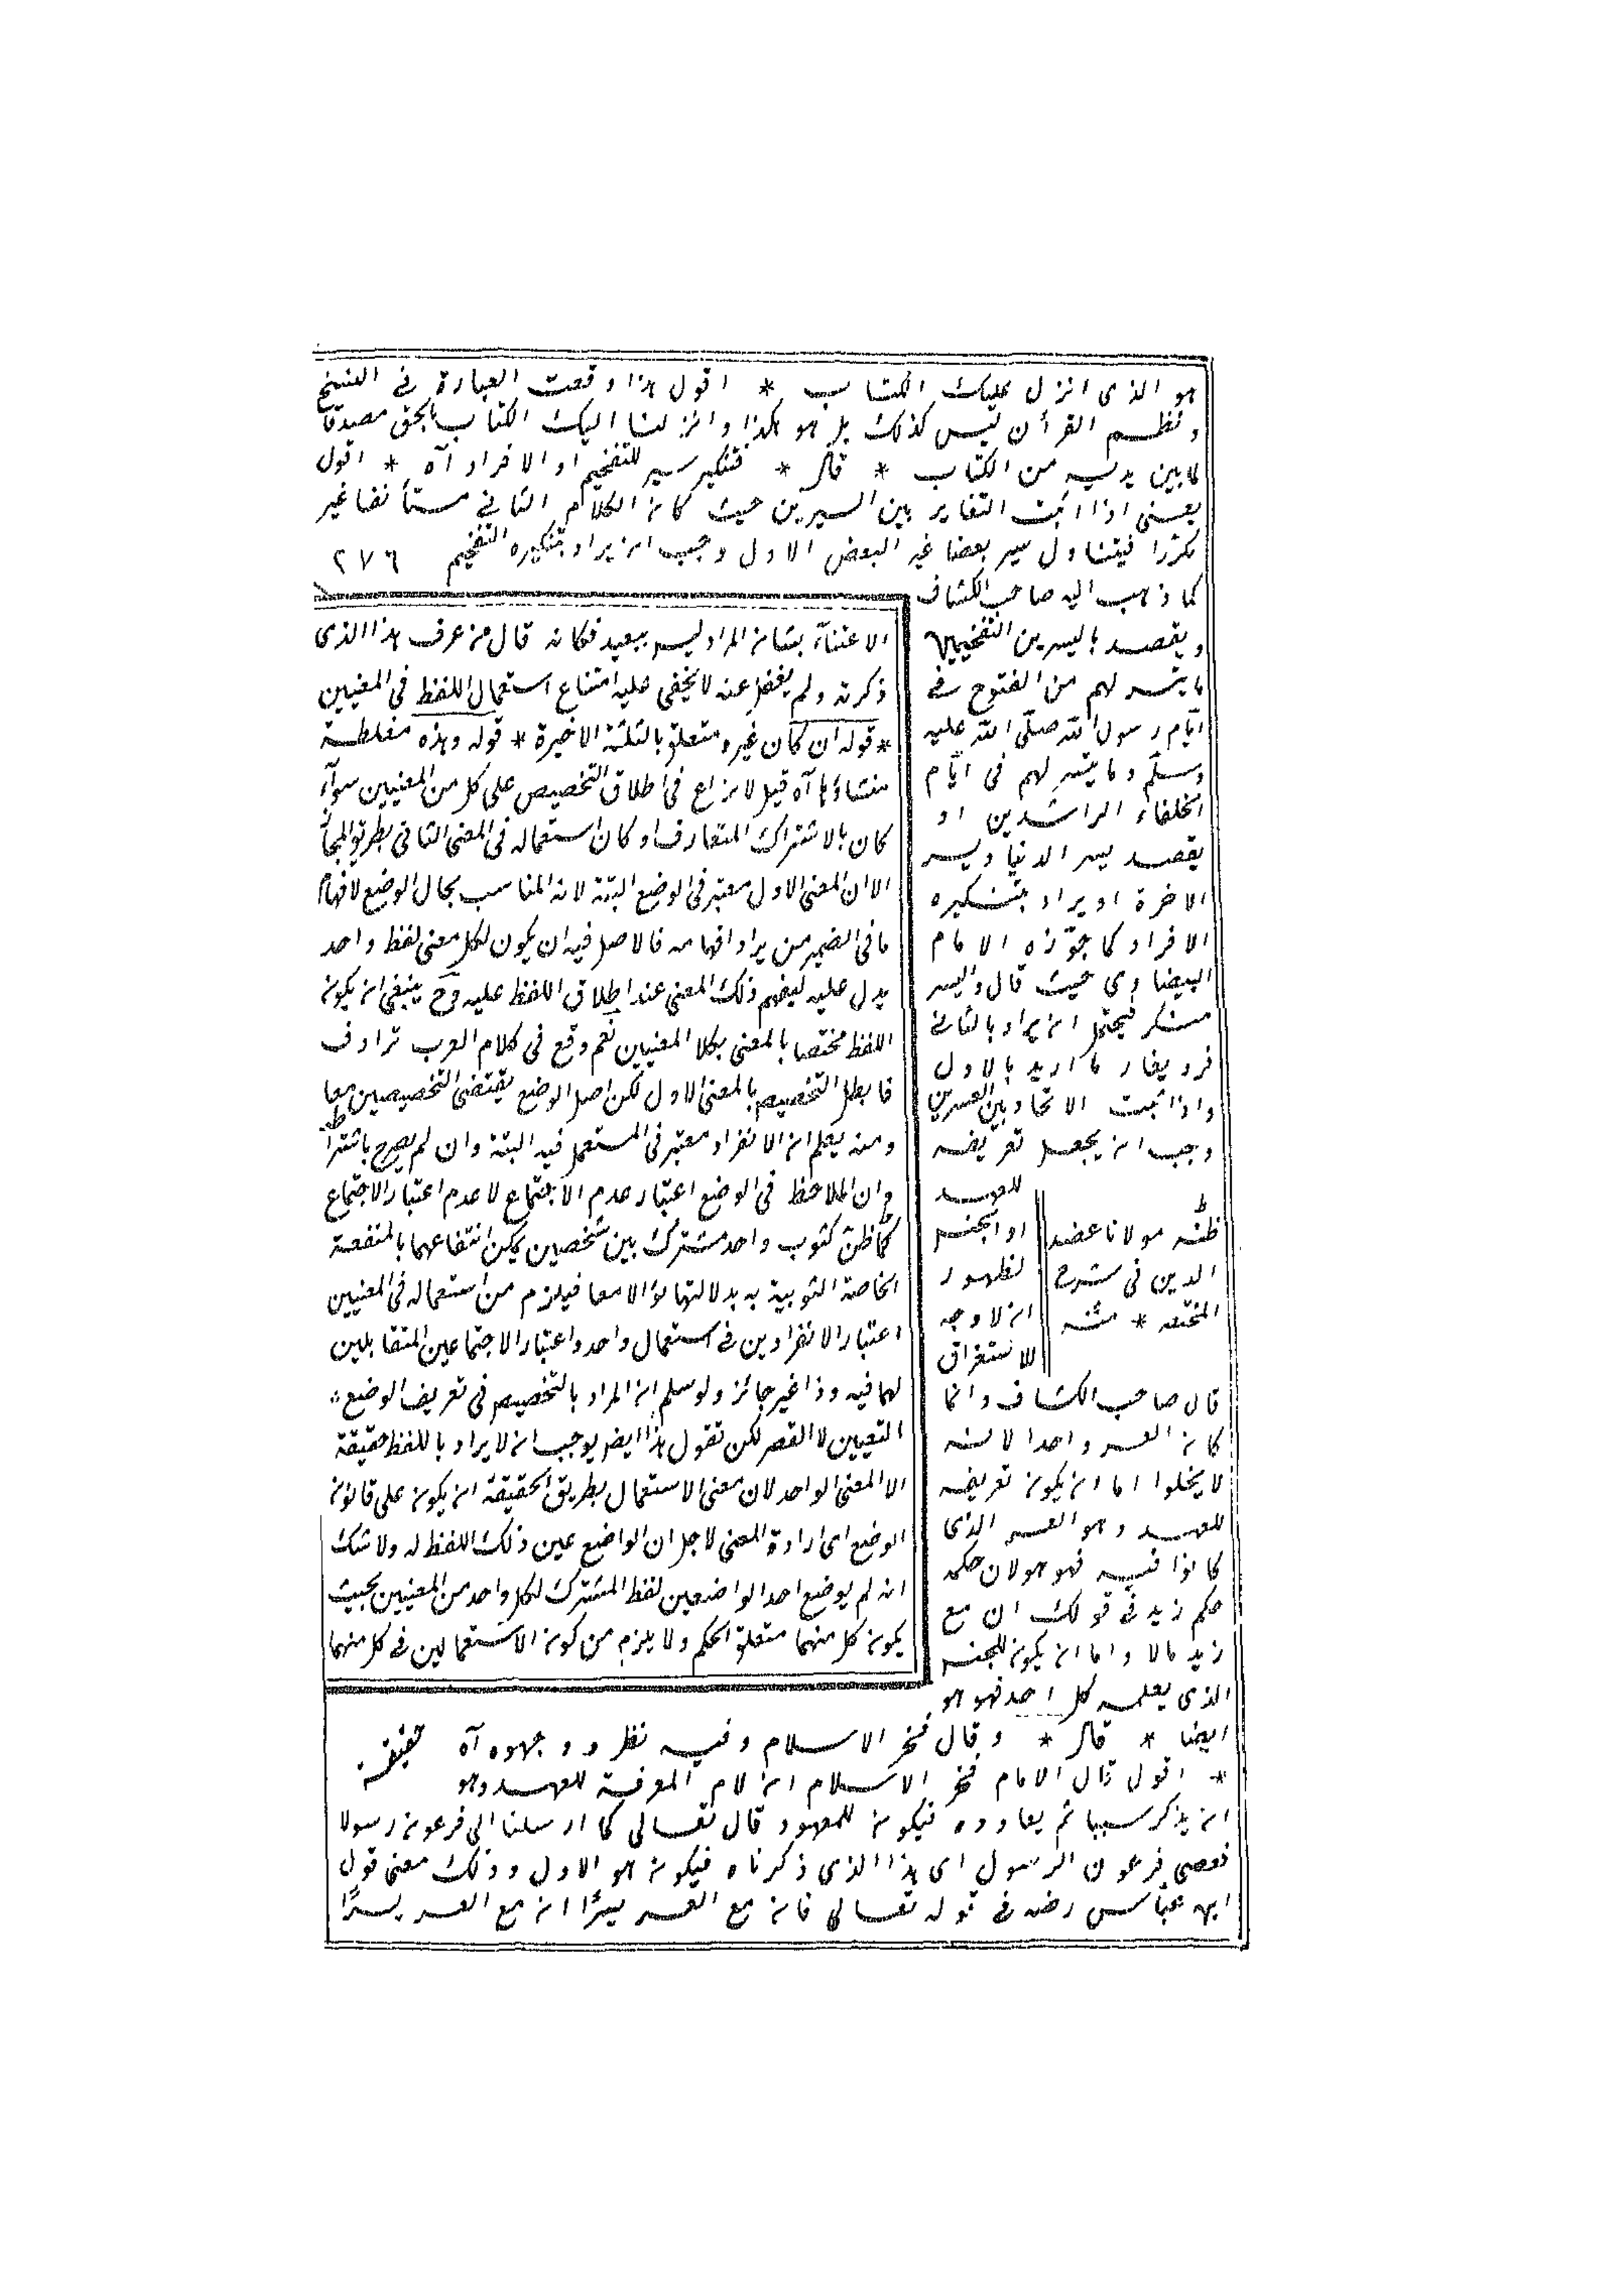 هو الذى انزل عليك الكتاب * اقول هذا وقعت العبارة فى النسخ
ونظم القرأن ليس كذلك بل هو هكذا وانزلنا اليك الكتاب بالحق مصدقا
لما بين يديه من الكتاب * قال * فتنكير يسر للتفخيم او الافراد آه * اقول
يعنى اذا اثبت التغاير بين اليسرين حيث كان الكلام الثانى مستأنفا غير
مكررا فيتناول يسر بعضا غير البعض الاول وجب ان يراد بتنكيره التفخيم
٢٧٦
كما ذهب اليه صاحب الكشاف
ويقصد باليسرين التفخيم
ما يتسر لهم من الفتوح فى
ايام رسول الله صلى الله عليه
وسلم وما يتسر لهم فى ايام
الخلفاء الراشدين او
يقصد يسر الدنيا ويسر
الاخرة او يراد بتنكيره
الافراد كما جوّزه الامام
البيضاوى حيث قال واليسر
منكر فيحتمل ان يراد بالثانى
فرد يغاير ما اريد بالاول
واذا ثبت الاتحاد بين العسرين
وجب ان يجعل تعريفه
للعهد
او الجنس
لظهور
ان لا وجه
للاستغراق
قال صاحب الكشاف وانما
كان العسر واحدا لانه
لا يخلوا اما ان يكون تعريفه
للعهد وهو العسر الذى
كانوا فيه فهو هو لان حكمه
حكم زيد فى قولك ان مع
زيد مالا واما ان يكون للجنس
الذى يعلمه كل احد فهو هو
ايضا * قال * وقال فخر الاسلام وفيه نظر ووجهوه آه
* اقول قال الامام فخر الاسلام ان لام المعرفة للعهد وهو
ان يذكر سببا ثم يعاوده فيكون للمعهود قال تعالى كما ارسلنا الى فرعون رسولا
فعصى فرعون الرسول اى هذا الذى ذكرناه فيكون هو الاول وذلك معنى قول
ابن عباس رضه فى قوله تعالى فان مع العسر يسرًا ان مع العسر يسرًا
ظنّه مولانا عضد
الدين فى شرح
المختصر * منه
الاعتنآء بشان المراد ليس ببعيد فكانه قال من عرف هذا الذى
ذكرته ولم يغفل عنه لا يخفى عليه امتناع استعمال اللفظ فى المعنيين
* قوله ان كان غيره متعلق بالثلثة الاخيرة * قوله وهذه مغلطة
منشاؤها آه قيل لا نزاع فى اطلاق التخصيص على كل من المعنيين سوآء
كان بالاشتراك المتعارف او كان استعماله فى المعنى الثانى بطريق المجاز
الا ان المعنى الاول معتبر فى الوضع البتة لانه المناسب بحال الوضع لافهام
ما فى الضمير من يراد افهامه فالاصل فيه ان يكون لكل معنى لفظ واحد
يدل عليه ليفهم ذلك المعنى عند اطلاق اللفظ عليه وح ينبغى ان يكون
اللفظ مختصا بالمعنى بكلا المعنيين نعم وقع فى كلام العرب ترادف
فابطل التخصيص بالمعنى الاول لكن اصل الوضع يقتضى التخصيصين معا
ومنه يعلم ان الانفراد معتبر فى المستعمل فيه البتة وان لم يصرح باشتراطه
وان الملاحظ فى الوضع اعتبار عدم الاجتماع لا عدم اعتبار الاجتماع
كما ظن كثوب واحد مشترك بين شخصين يمكن انتفاعهما بالمنفعة
الخاصة الثوبية به بدلا لتهايؤ لا معا فيلزم من استعماله فى المعنيين
اعتبار الانفرادين فى استعمال واحد واعتبار الاجتماعين المتقابلين
لهما فيه وذا غير جائز ولو سلم ان المراد بالتخصيص فى تعريف الوضع
التعيين لا القصر لكن نقول هذا ايضا يوجب ان لا يراد باللفظ حقيقة
الا المعنى الواحد لان معنى الاستعمال بطريق الحقيقة ان يكون على قانون
الوضع اى ارادة المعنى لاجل ان الواضع عين ذلك اللفظ له ولا شك
انه لم يوضع احد الواضعين لفظ المشترك لكل واحد من المعنيين بحيث
يكون كل منهما متعلق الحكم ولا يلزم من كون الاستعمالين فى كل منهما